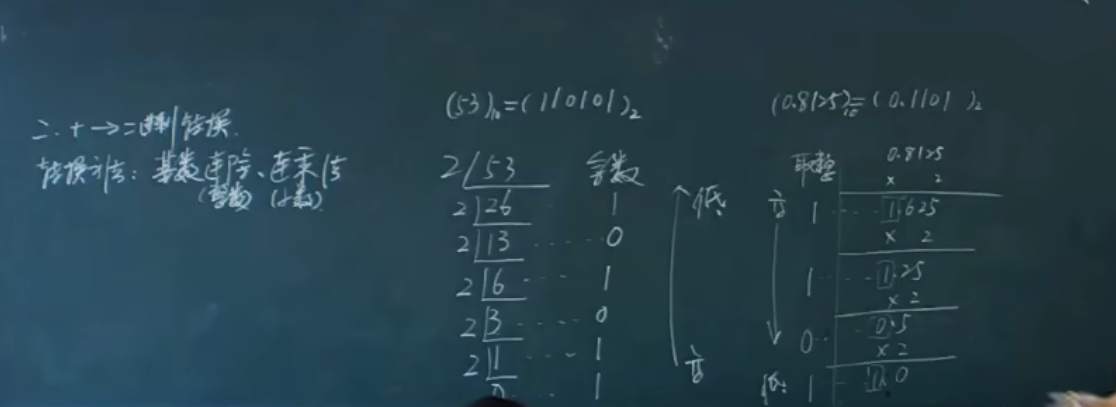 二. 十→二进制转换.
转换方法: 基数连除、连乘法
(整数) (小数)
(53)₁₀=(110101)₂
2 53 余数
2 26 1 低
2 13 ······ 0
2 6 ···· 1
2 3 ····· 0
2 1 ···· 1 高
0 ·· 1
(0.8125)₁₀=(0.1101)₂
取整 0.8125
× 2
高 1 ···· 1.625
× 2
1 ···· 1.25
× 2
0 ·· 0.5
× 2
低 1 ·· 1.0